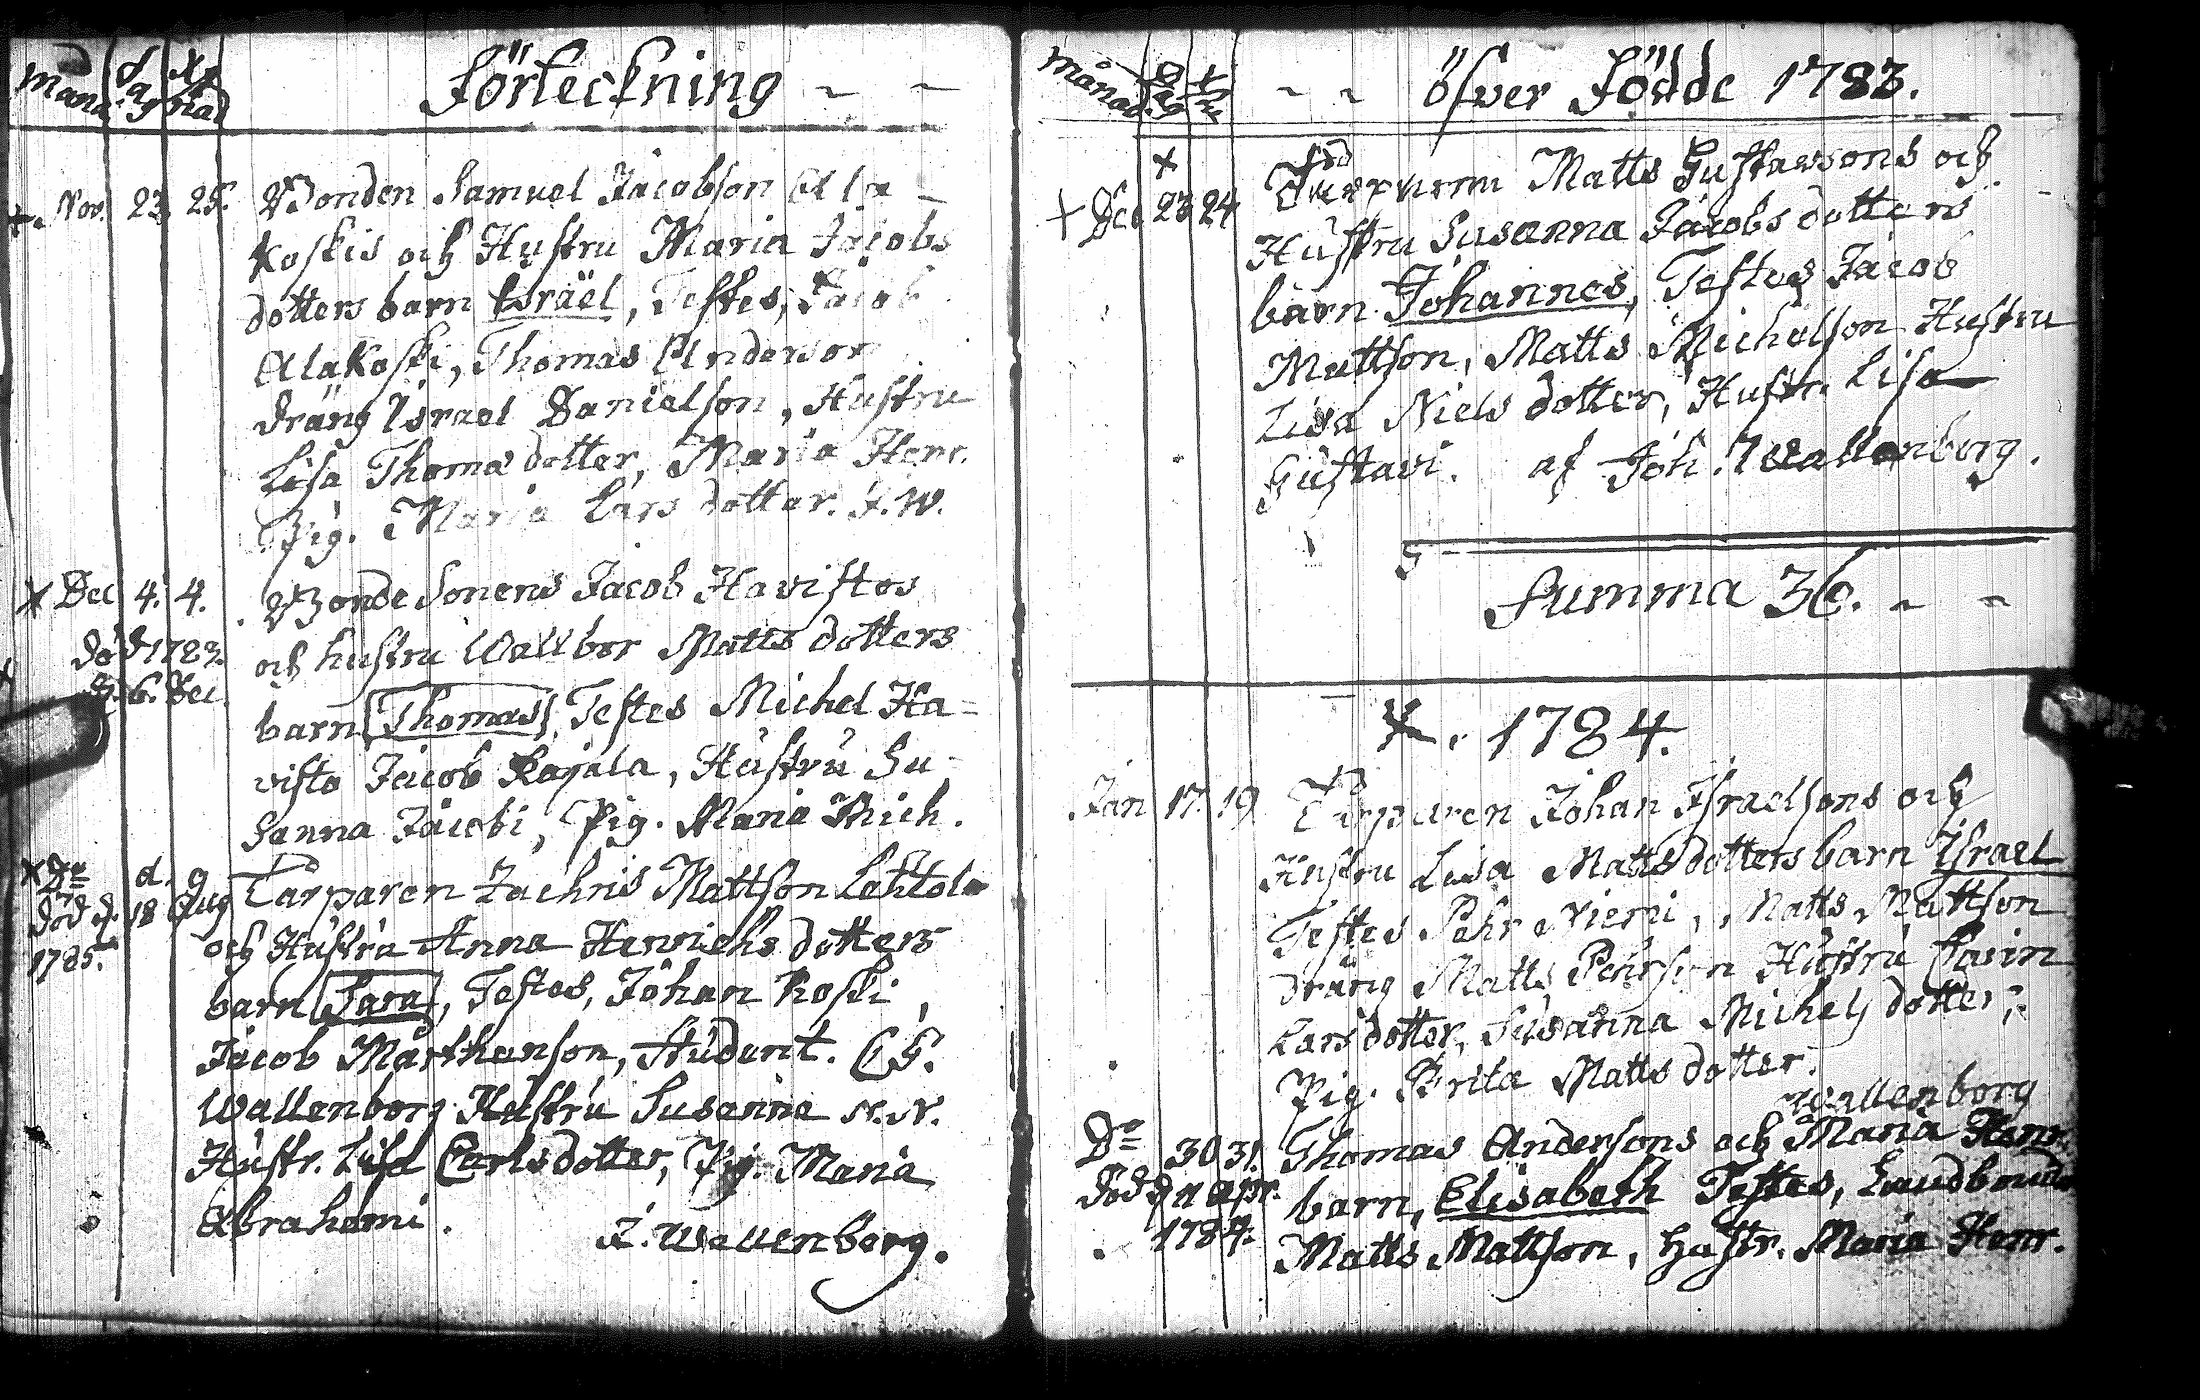 Månad Dag Xstnad
Förteckning
+. Nov. 23 25. Bonden Samuel Jacobson Ala-
koskis och Hustru Maria Jacobs
dotters barn Israël, Testes, Jacob
Alakoski, Thomas Anderson
dräng Israel Danielson, Hustru
Lisa Thomadotter, Maria Henr.
Pig. Maria Larsdotter. J. W.
x Dec 4. 4. Bonde Sonens Jacob Havistos
och hustru Wallbor Matts dotters
död 1783.
d. 6. Dec.
barn Thomas, Testes Michel Ha-
visto Jacob Rajala, Hustru Su-
sanna Jacobi, Pig. Maria Mich.
x Do d. 9 Torparen Zachris Mattson Lahtola
död d. 18 Aug
1785.
och Hustru Anna Henrichs dotters
barn Sara, Testes, Johan Koski,
Jacob Mårthenson, Student. C. G.
Wallenborg Hustru Susanna N. N.
Hustr. Lisa Carlsdotter, Pig. Maria
Abrahami.
J. Wallenborg.
Månad Dag
öfver Födde 1783.
+ Dec 23 24 Matts Gustavsons och
Hustru Susanna Jacobs dotters
barn Johannes, Testes Jacob
Mattson, Matts Michelson Hustru
Lisa Niels dotter, Hustr. Lisa
Gustavi. af Joh. Wallenborg.
Summa 36.
1784.
Jan 17. 19 Torparen Johan Israelsons och
Hustru Lisa Mattsdotters barn Israel
Testes Pehr Niemi, Matts Mattson
dräng Matts Pehrson Hustru Carin
Lars dotter, Susanna Michels dotter,
Pig. Brita Matts dotter.
Wallenborg
Do 30 31. Thomas Andersons och Maria Henr.
död d. 11 Apr.
1784.
barn, Elisabeth Testes, Landbonde
Matts Mattson, Hustr. Maria Henr.